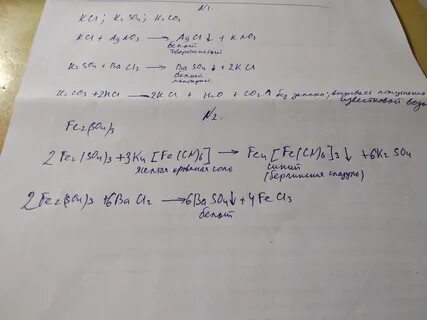 N1.
KCl ; K2SO4 ; K2CO3
KCl + AgNO3 → AgCl↓ + KNO3
белый
творожистый
K2SO4 + BaCl2 → BaSO4↓ + 2KCl
белый
K2CO3 + 2HCl → 2KCl + H2O + CO2↑ без запаха; вызывает помутнение
известковой воды
N2.
Fe2(SO4)3
2Fe2(SO4)3 + 3K4[Fe(CN)6] → Fe4[Fe(CN)6]3↓ + 6K2SO4
желтая кровяная соль синий
(берлинская лазурь)
2Fe2(SO4)3 + 6BaCl2 → 6BaSO4↓ + 4FeCl3
белый